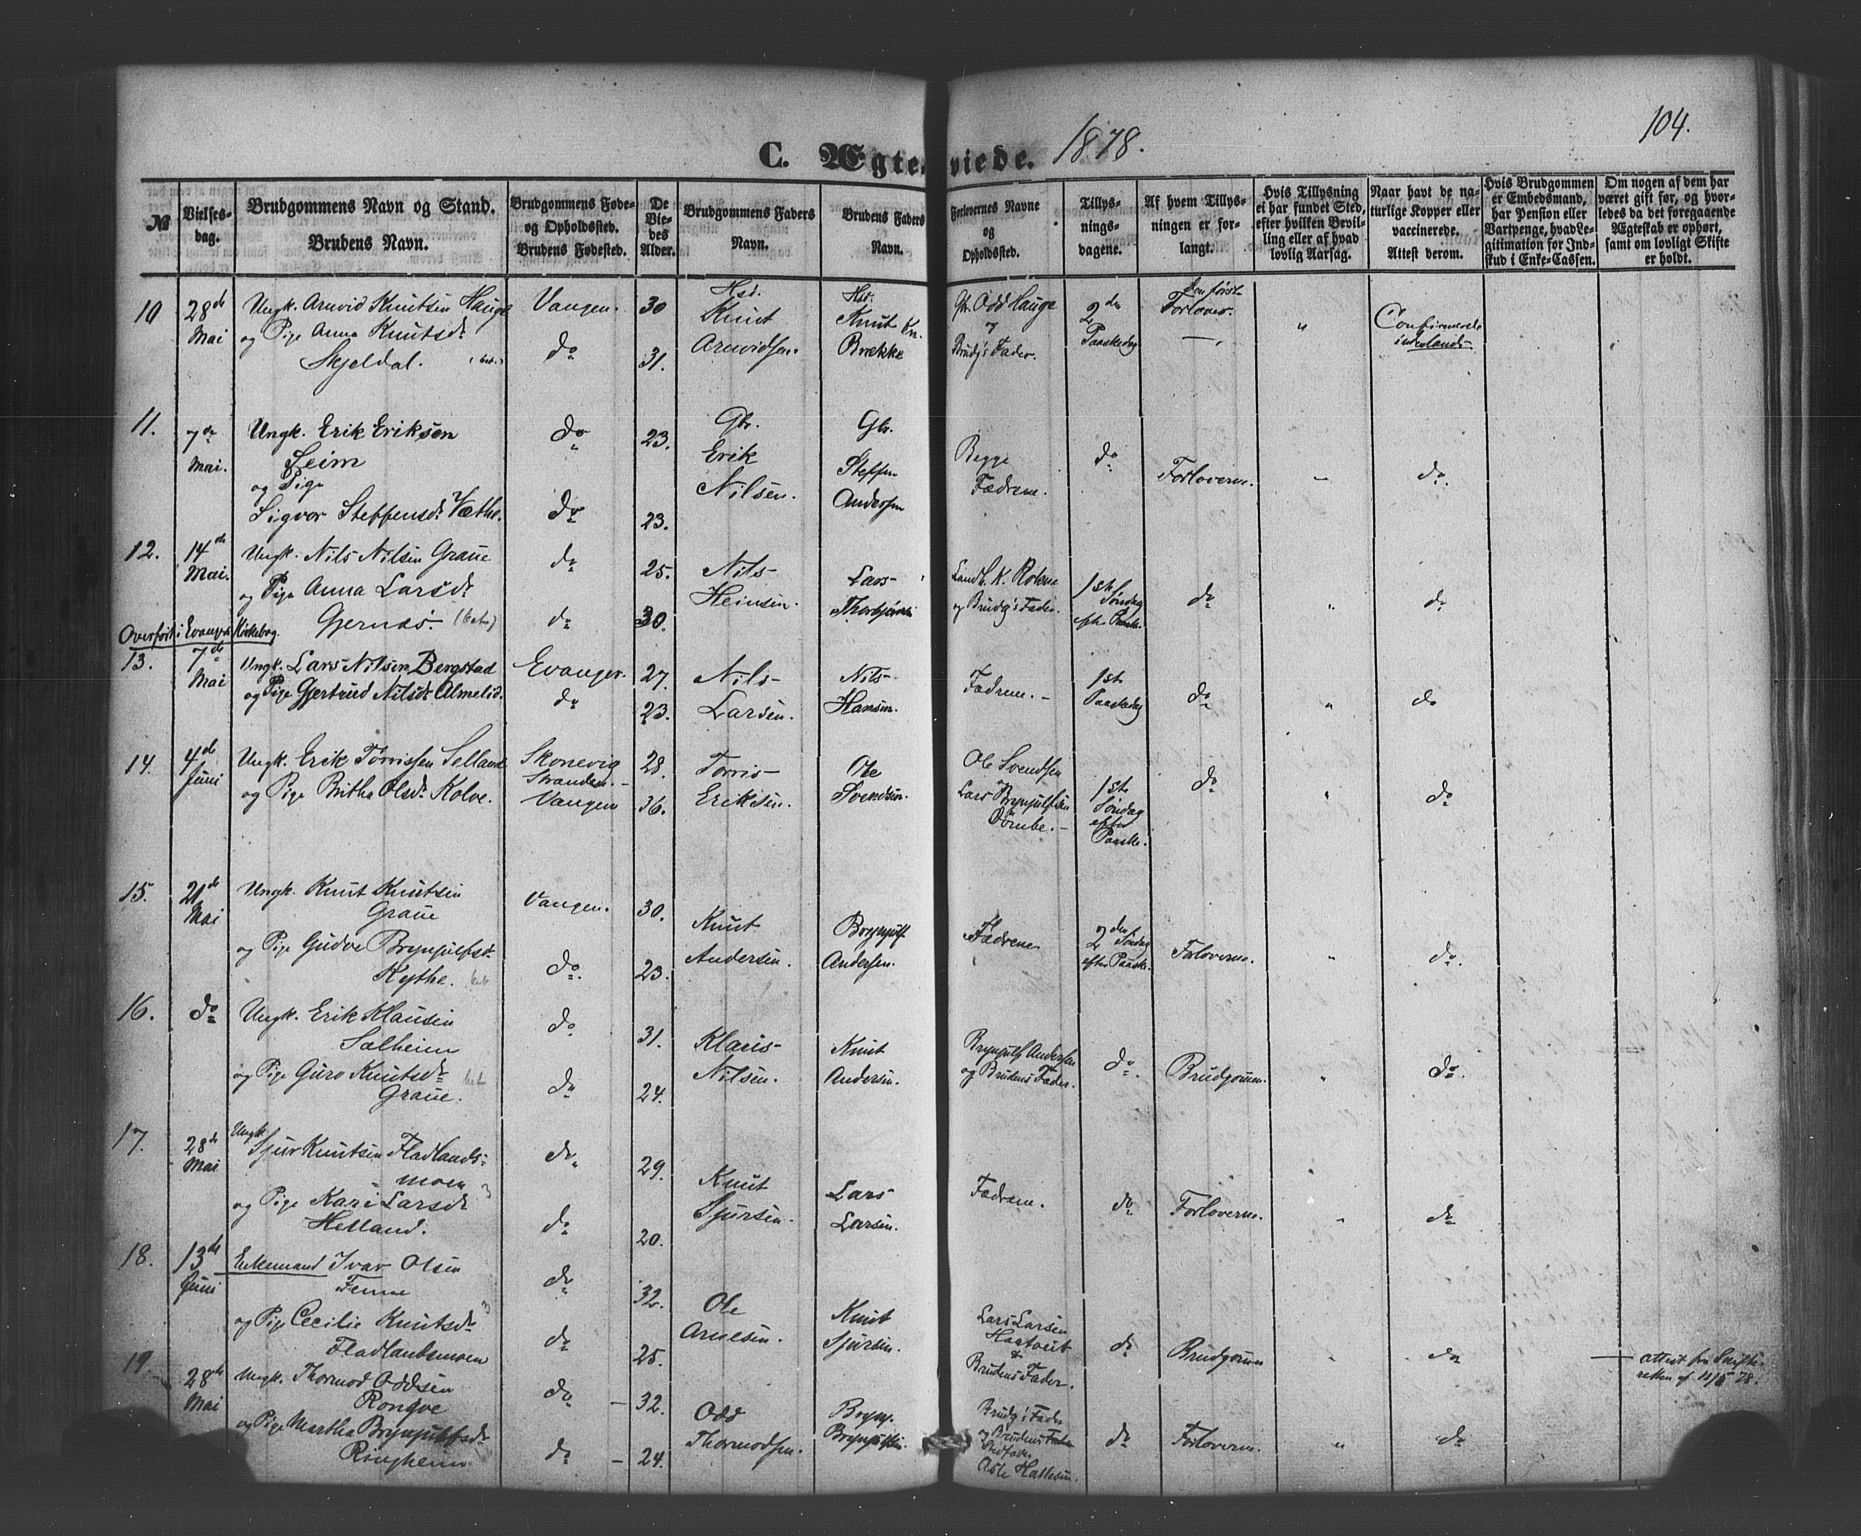 104.
C. Ægteviede. 1878.
№
Vielses-
dag.
Brudgommens Navn og Stand.
Brudens Navn.
Brudgommens Føde-
og Opholdssted.
Brudens Fødested.
De
Vie-
des
Alder.
Brudgommens Faders
Navn.
Brudens Faders
Navn.
Forlovernes Navne
og
Opholdssted.
Tillys-
nings-
dagene.
Af hvem Tillys-
ningen er for-
langt.
Hvis Tillysning
ei har fundet Sted,
efter hvilken Bevil-
ling eller af hvad
lovlig Aarsag.
Naar havt de na-
turlige Kopper eller
vaccinerede.
Attest derom.
Hvis Brudgommen
er Embedsmand,
har Pension eller
Vartpenge, hvad Le-
gitimation for Ind-
skud i Enke-Cassen.
Om nogen af dem har
været gift før, og hvor-
ledes da det foregaaende
Ægteskab er ophørt,
samt om lovligt Skifte
er holdt.
10 28de Mai
Ungk. Arnvid Knutsen Hauge
og Pige Anna Knutsdr
Skjeldal.
Vangen.
do
30
31.
Hsd.
Knut
Arnvidsen.
Hsd.
Knut Kn.
Brække
Gbr. Odd Hauge
og
Brudg's Fader.
2den
Paaskedag
Den første
Forlover.
"
Confirmerede
indenlands
11. 7de Mai.
Ungk. Erik Eriksen
Leim
og Pige
Sigvor Steffensdr Væthe.
do
do
23.
23.
Gbr.
Erik
Nilsen.
Gbr.
Steffen
Andersen
Begge
Fædrene.
do
Forloverne.
"
do
12. 14de Mai.
Ungk. Nils Nilsen Graue
og Pige Anna Larsdr
Gjernæs.
do
do
25.
30.
Nils
Heinsen.
Lars
Landh. K. Rokne
og Brudg's Fader.
1ste
Søndag
eft. Paaske.
do
"
do
Overført i Evangers Kirkebog.
13. 7de Mai
Ungk. Lars Nilsen Bergstad
og Pige Gjertrud Nilsdr Almelid.
Evanger.
do
27.
23.
Nils
Larsen.
Nils
Hansen.
Fædrene.
1ste
Paaskedag
do
"
do
14. 4de Juni
Ungk. Erik Torrissen Selland
og Pige Britha Olsdr Kolve.
Skonevig
Stranden.
Vangen
28.
36.
Torris
Eriksen.
Ole
Svendsen.
Ole Svendsen
og
Lars Brynjulfsen
1ste
Søndag
efter
Paaske.
do
"
do
15. 21de Mai
Ungk. Knut Knutsen
Graue
og Pige Gudve Brynjulfsdr
Kythe.
Vangen.
do
30.
23.
Knut
Andersen.
Brynjulf
Andersen.
Fædrene
2den Søndag
efter Paaske.
Forloverne.
"
do.
16. do
Ungk. Erik Klausen
Sælheim
og Pige Guro Knutsdr
Graue.
do
do
31.
24.
Klaus
Nilsen.
Knut
Andersen.
Brynjulf Andersen
og Brudens Fader.
do.
Brudgommen.
"
do.
17. 28de Mai
Ungk.
Sjur Knutsen Fladlands-
moen
og Pige Kari Larsdr
Helland.
do
do
29.
20.
Knut
Sjursen.
Lars
Larsen.
Fædrene.
do
Forloverne.
"
do
18. 13de Juni
Enkemand Ivar Olsen
Fenne
og Pige Cecilie Knutsdr
Fladlandsmoen
do
do
32.
25.
Ole
Arnesen.
Knut
Sjursen.
Lars Larsen
Haatveit
&
Brudens Fader.
do
Brudgommen
"
do
attest fra Skifte-
retten af 11/5 78.
19. 28de Mai
Ungk. Thormod Oddsen
Rongve
og Pige Martha Brynjulfsdr
Ringheim
do
do
32.
24.
Odd
Thormodsen.
Brynj.
Brynjulfsen.
Brudg's Fader
og Brudens Fader
Stedfader
Asle Hallesen.
do
Forloverne.
"
do